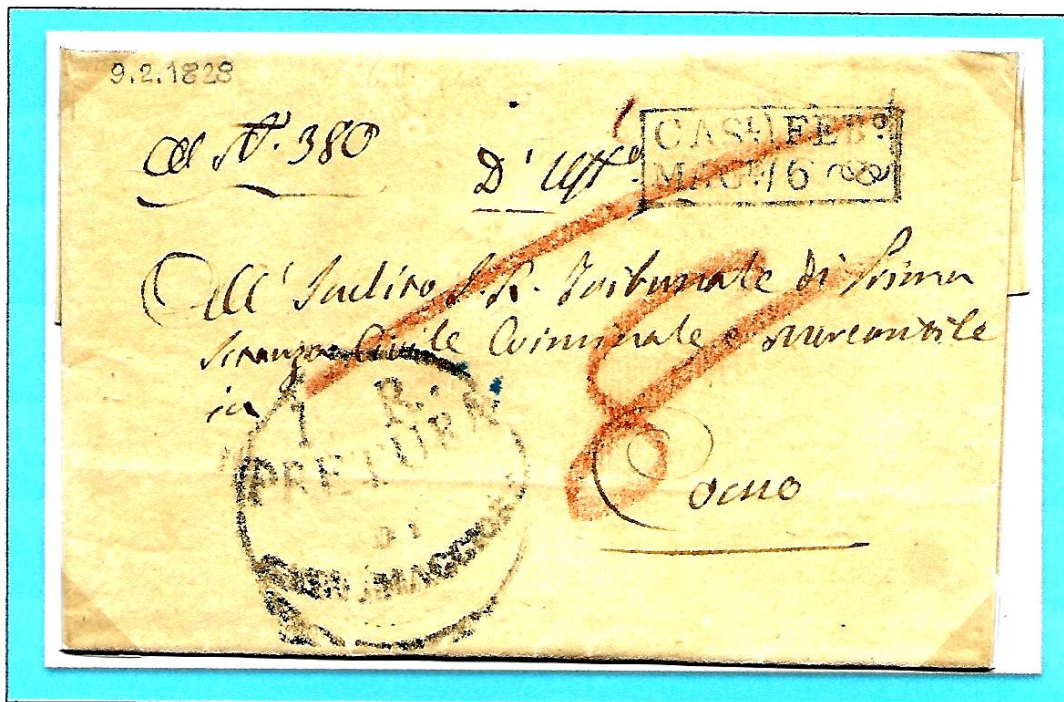 9.2.1828
al N.º 380
D' Uff.º
CASL. FEB.º
MAGL. 16
All' Inclito I. R. Tribunale di Prima
Istanza Civile Criminale e Mercantile
in
Como
I. R.
PRETURA
DI
MAGGIORE